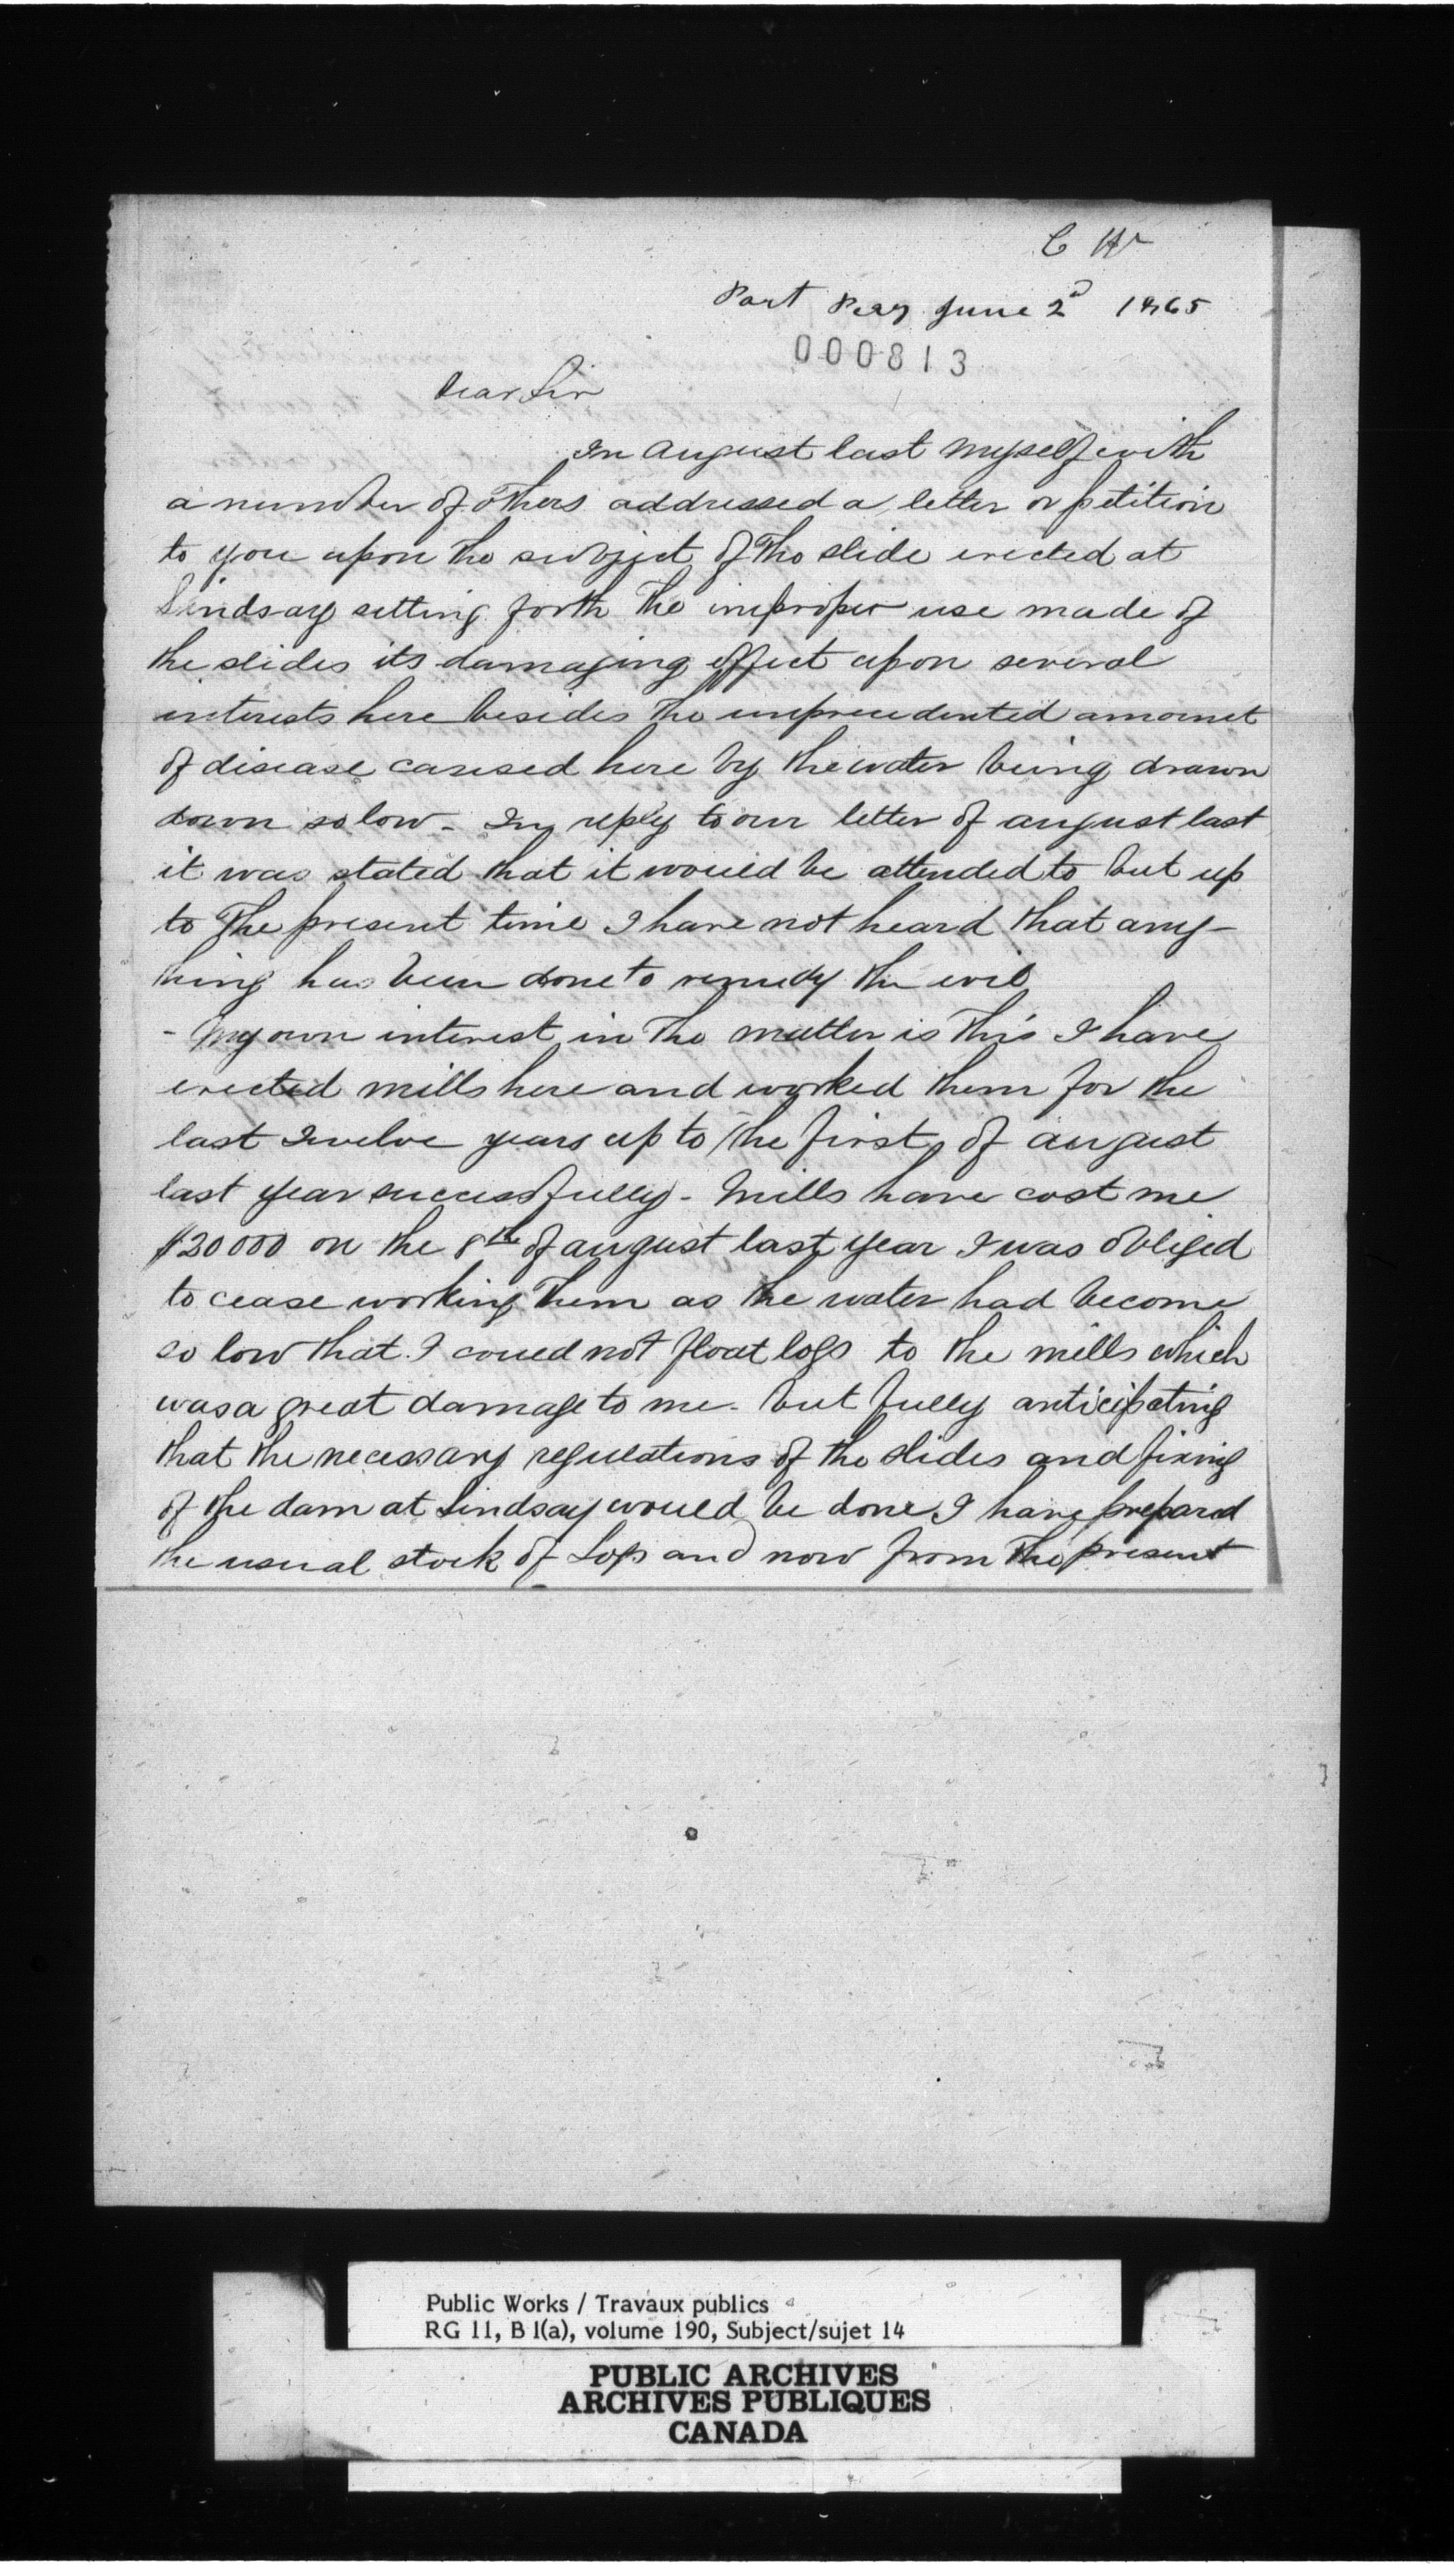 C W
Port Pery June 2d 1865
000813
Dear Sir
In August last myself with
a number of others addressed a letter or petition
to you upon the subject of the slide erected at
Lindsay setting forth the improper use made of
the slides its damaging effect upon several
interests here besides the unprecedented amount
of disease caused here by the water being drawn
down so low - In reply to our letter of august last
it was stated that it would be attended to but up
to the present time I have not heard that any-
thing has been done to remedy the evil
- My own interest in the matter is this I have
erected mills here and worked them for the
last Twelve years up to the first of august
last year successfully - Mills have cost me
$20000 on the 8th of august last year I was obliged
to cease working them as the water had become
so low that I could not float logs to the mills which
was a great damage to me - but fully anticipating
that the necessary regulations of the slides and fixing
of the dam at Lindsay would be done I have prepared
the usual stock of Logs and now from the present
Public Works / Travaux publics
RG 11, B 1(a), volume 190, Subject/sujet 14
PUBLIC ARCHIVES
ARCHIVES PUBLIQUES
CANADA